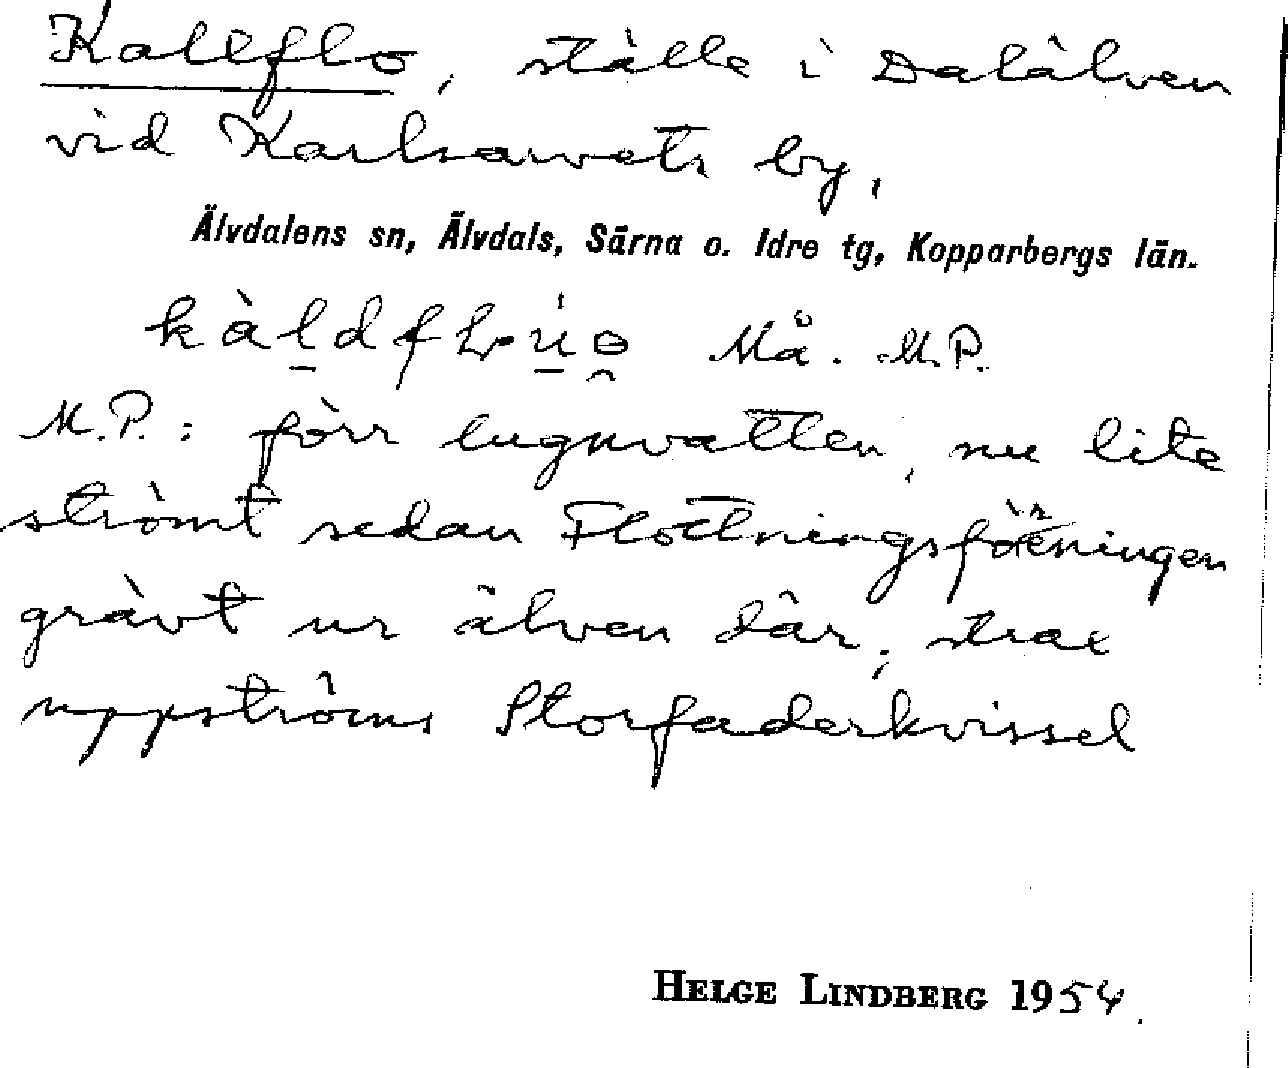 Kallflo, ställe i Dalälven
vid Karlsarvets by,
Älvdalens sn, Älvdals, Särna o. Idre tg, Kopparbergs län.
Må. M.P.
M.P.: förr lugnvatten, nu lite
strömt sedan Flottningsföreningen
grävt ur älven där, strax
uppströms Storfaderkvissel
HELGE LINDBERG 1954.